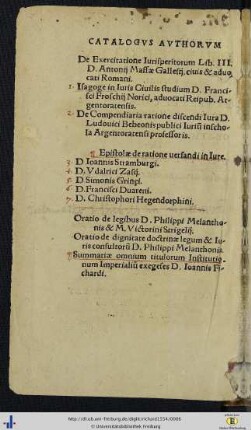 CATALOGVS AVTHORVM
De Exercitatione Iurisperitorum Lib. III.
D. Antonij Massæ Gallesij, ciuis & aduo
cati Romani.
1. Isagoge in Iuris Ciuilis studium D. Franci-
sci Froschij Norici, aduocati Reipub. Ar-
gentoratensis.
2. De Compendiaria ratione discendi Iura D.
Ludouici Bebeonis publici Iuris in scho-
la Argentoratensi professoris.
Epistolæ de ratione uersandi in Iure.
3 D. Ioannis Stramburgi.
4 D. Vdalrici Zasij.
5 D. Simonis Grinęi.
6 D. Francisci Duareni.
7. D. Christophori Hegendorphini.
Oratio de legibus D. Philippi Melanthо-
nis & M. Victorini Strigelij.
Oratio de dignitate doctrinæ legum & Iu-
ris consultorū D. Philippi Melanthonis.
Summariæ omnium titulorum Institutio-
num Imperialiū exegeses D. Ioannis Fi-
chardi.
http://dl.ub.uni-freiburg.de/diglit/richard1554/0006
© Universitätsbibliothek Freiburg